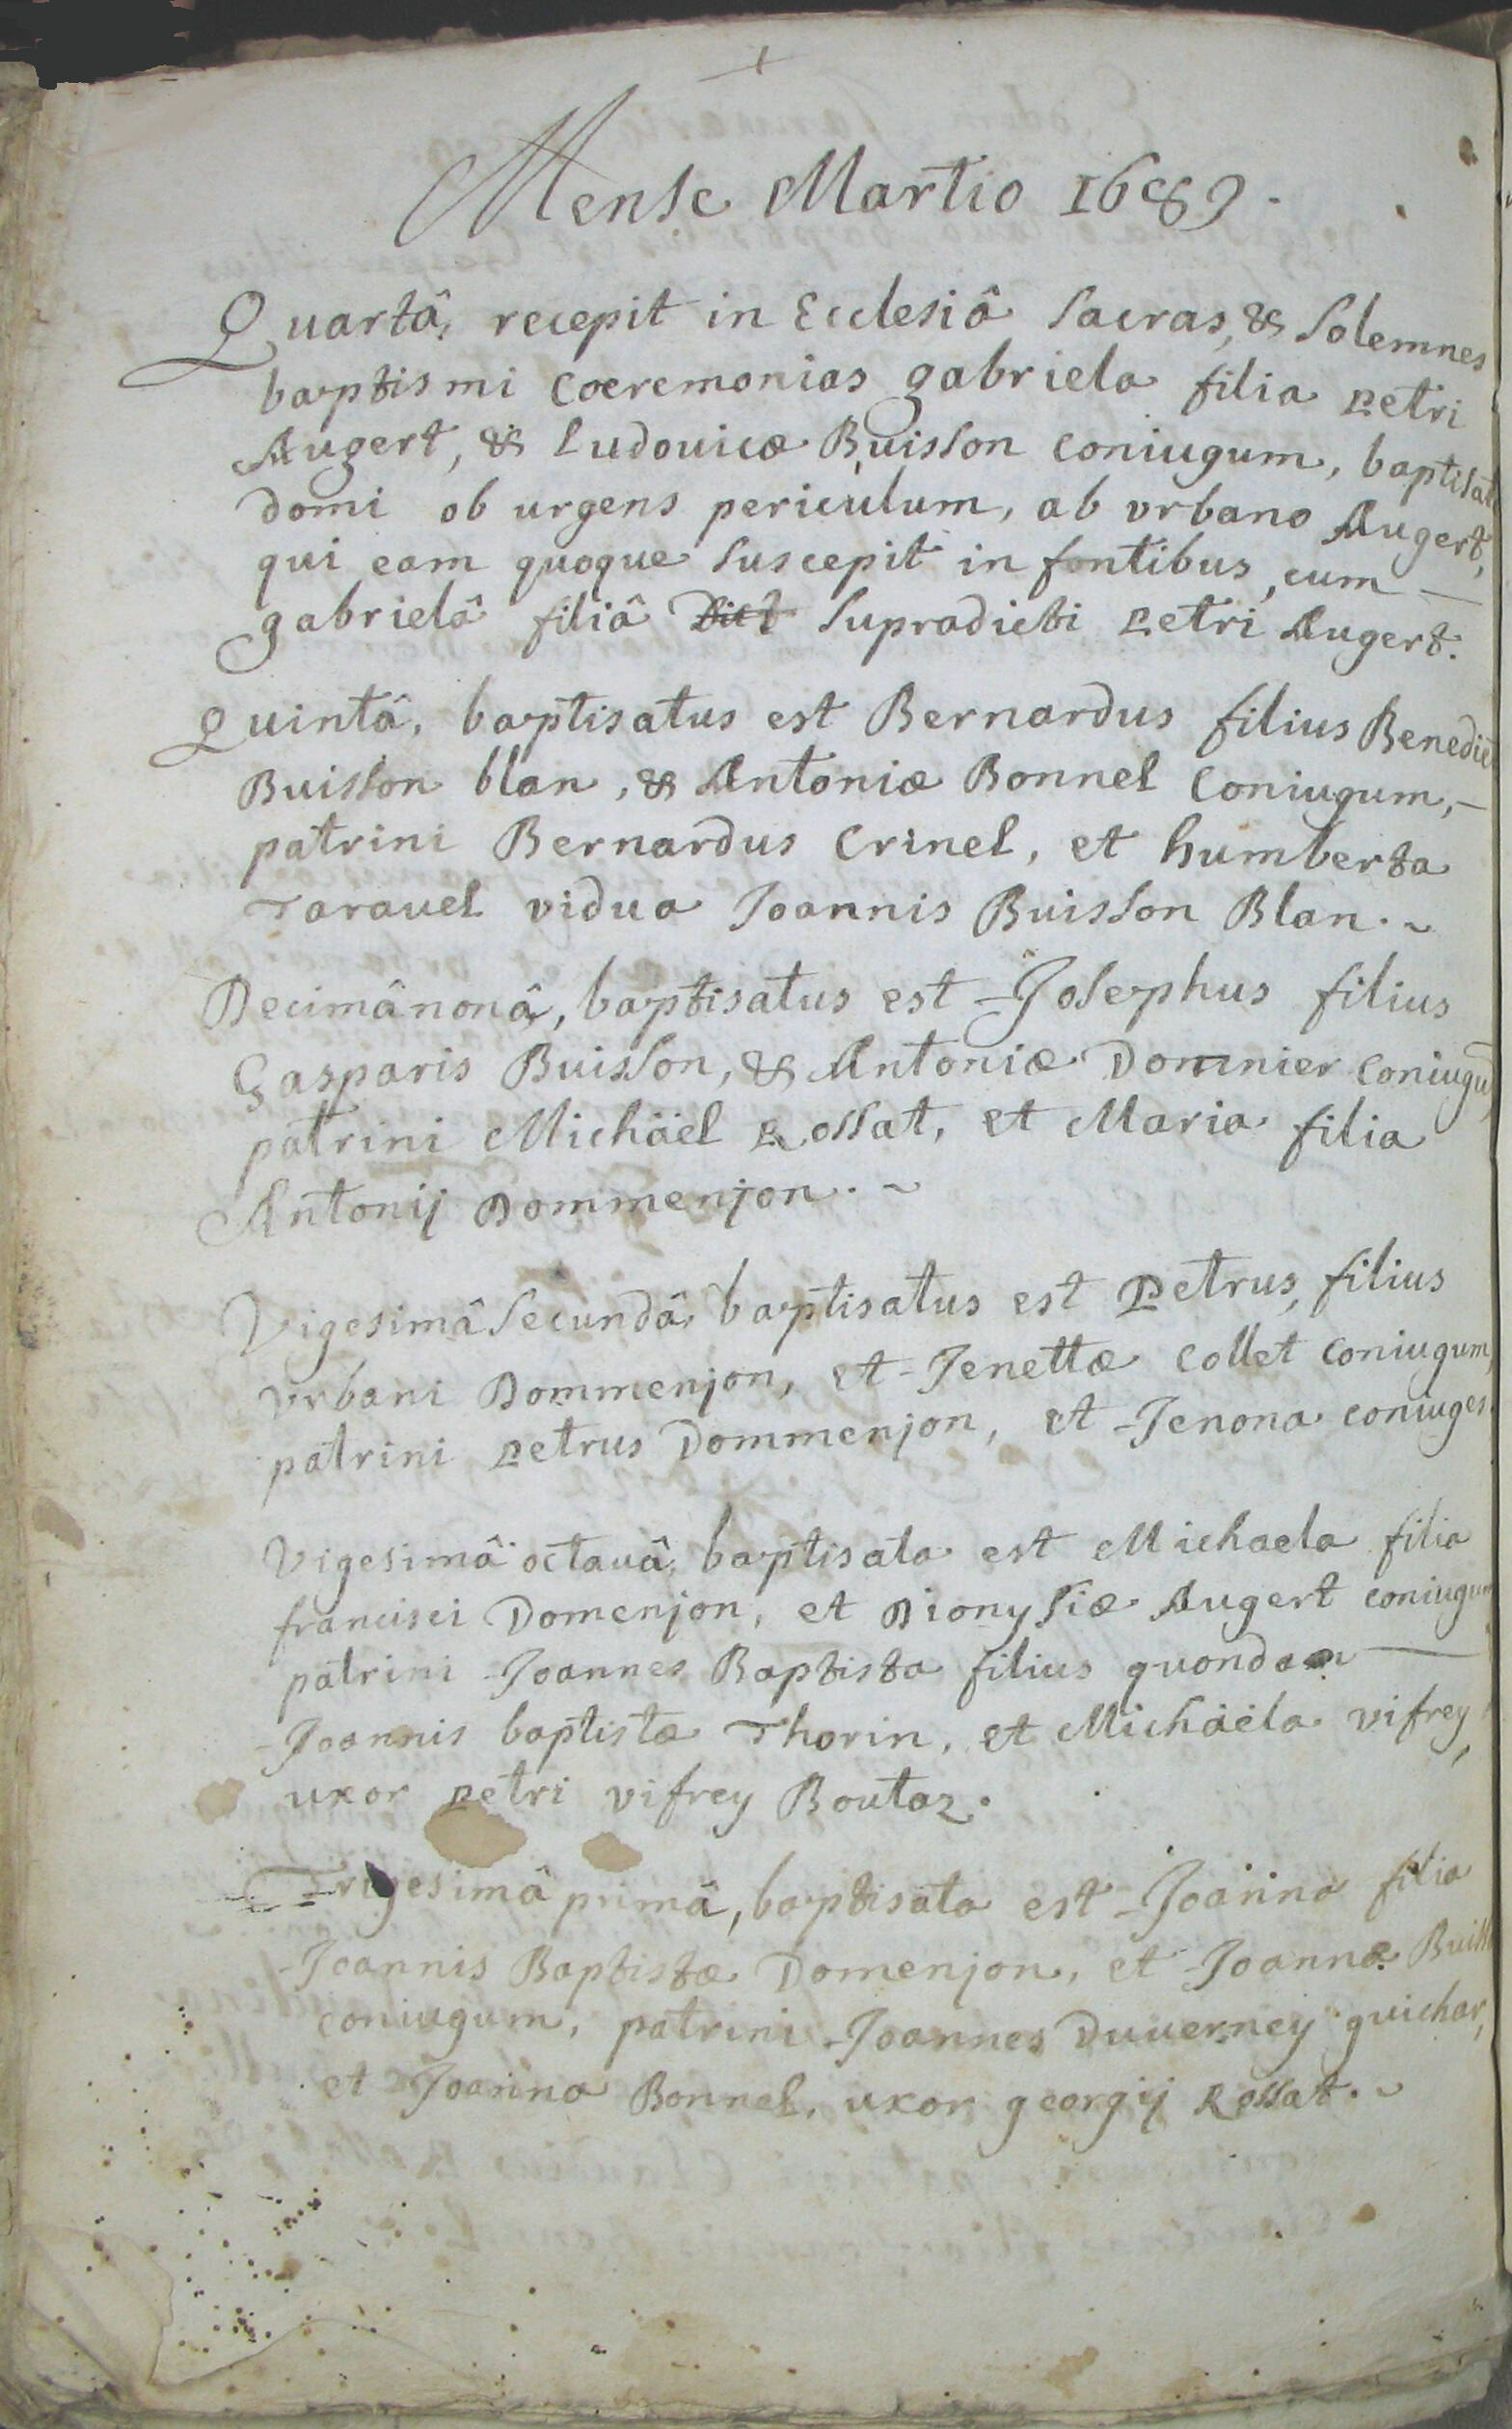 Mense Martio 1689.
Quartâ, recepit in Ecclesiâ sacras, & solemnes
baptismi coeremonias gabriela filia petri
Augert, & Ludouicæ Buisson coniugum, baptisat
domi ob urgens periculum, ab vrbano Augert,
qui eam quoque suscepit in fontibus, cum —
gabrielâ filiâ supradicti petri Augert.
Quintâ, baptisatus est Bernardus filius Benedict
Buisson blan, & Antoniæ Bonnel Coniugum, —
patrini Bernardus Crinel, et humberta
Tarauel vidua Joannis Buisson Blan. ~
Decimânonâ, baptisatus est Josephus filius
Gasparis Buisson, & Antoniæ Domnier coniugũ,
patrini Michäel Rossat, et Maria filia
Antonij Dommenjon. ~
Vigesimâ secundâ, baptisatus est Petrus, filius
vrbani Dommenjon, et Jenettæ Collet coniugum,
patrini petrus Dommenjon, et Jenona coniuges.
Vigesimâ octauâ, baptisata est Michaela filia
francisci Domenjon, et Dionysiæ Augert coniugum
patrini Joannes Baptista filius quondam —
Joannis baptistæ Thorin, et Michäela vifrey,
uxor petri vifrey Boutaz.
Trigesimâ primâ, baptisata est Joanna filia
Joannis Baptistæ Domenjon, et Joannæ Buiss
coniugum, patrini Joannes Duuerney guichar,
et Joanna Bonnel, uxor georgij Rossat. ~